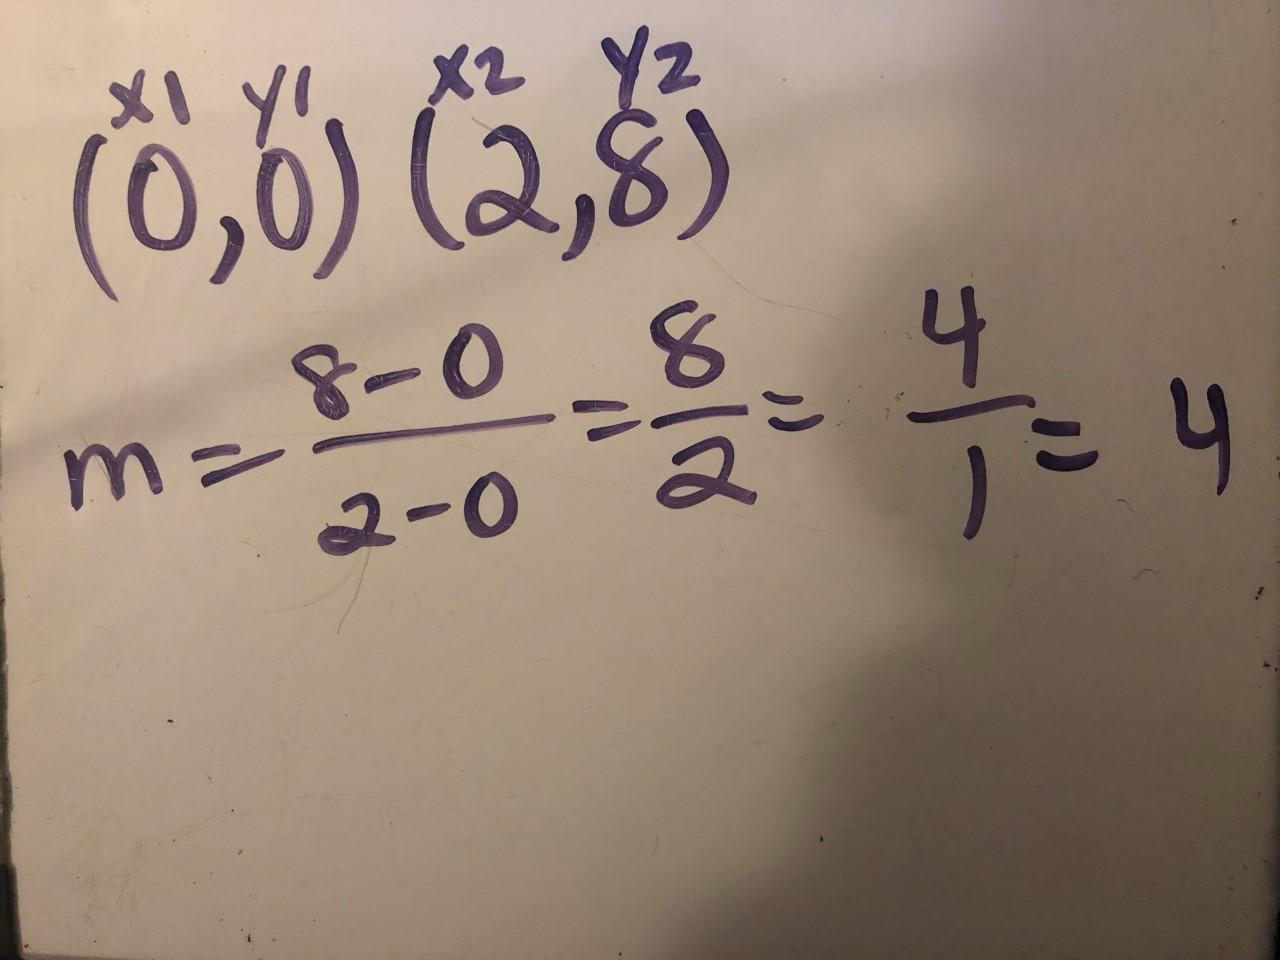 x1 y1 x2 y2
(0,0) (2,8)
m = 8-0/2-0 = 8/2 = 4/1 = 4